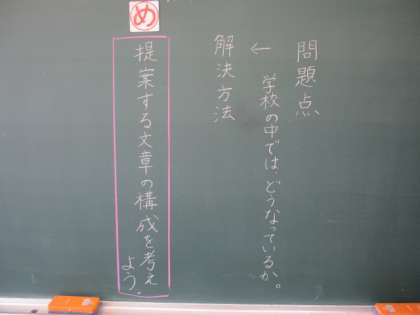 問題点
↓
学校の中では、どうなっているか。
解決方法
め
提案する文章の構成を考えよう。